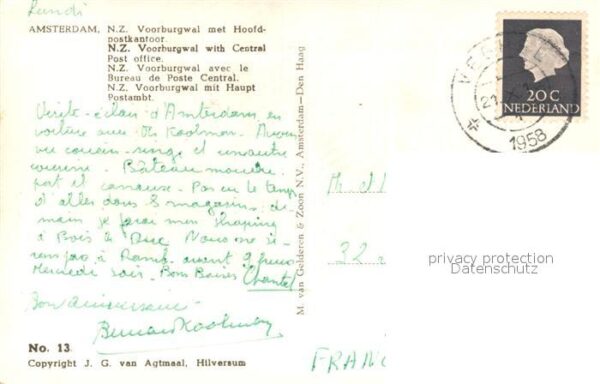 Lundi
AMSTERDAM, N.Z. Voorburgwal met Hoofd-
postkantoor.
N.Z. Voorburgwal with Central
Post office.
N.Z. Voorburgwal avec le
Bureau de Poste Central.
N.Z. Voorburgwal mit Haupt
Postambt.
Visite-éclair d'Amsterdam en
voiture avec Koolman.
cousin singe et un autre
Bateau mouche
port et canaux. Pas eu le temps
d'aller dans magasins, de-
main je ferai mon shoping
à Bois le Duc Nous ne se-
rons pas à avant 9 heures
Mercredi soir. Bons Baisers Chantal
Bon anniversaire
Bernard Koolman
No. 13
Copyright J. G. van Agtmaal, Hilversum
M. van Gelderen & Zoon N.V., Amsterdam—Den Haag
20 C
NEDERLAND
21
1958
M et
32
FRANC
privacy protection
Datenschutz